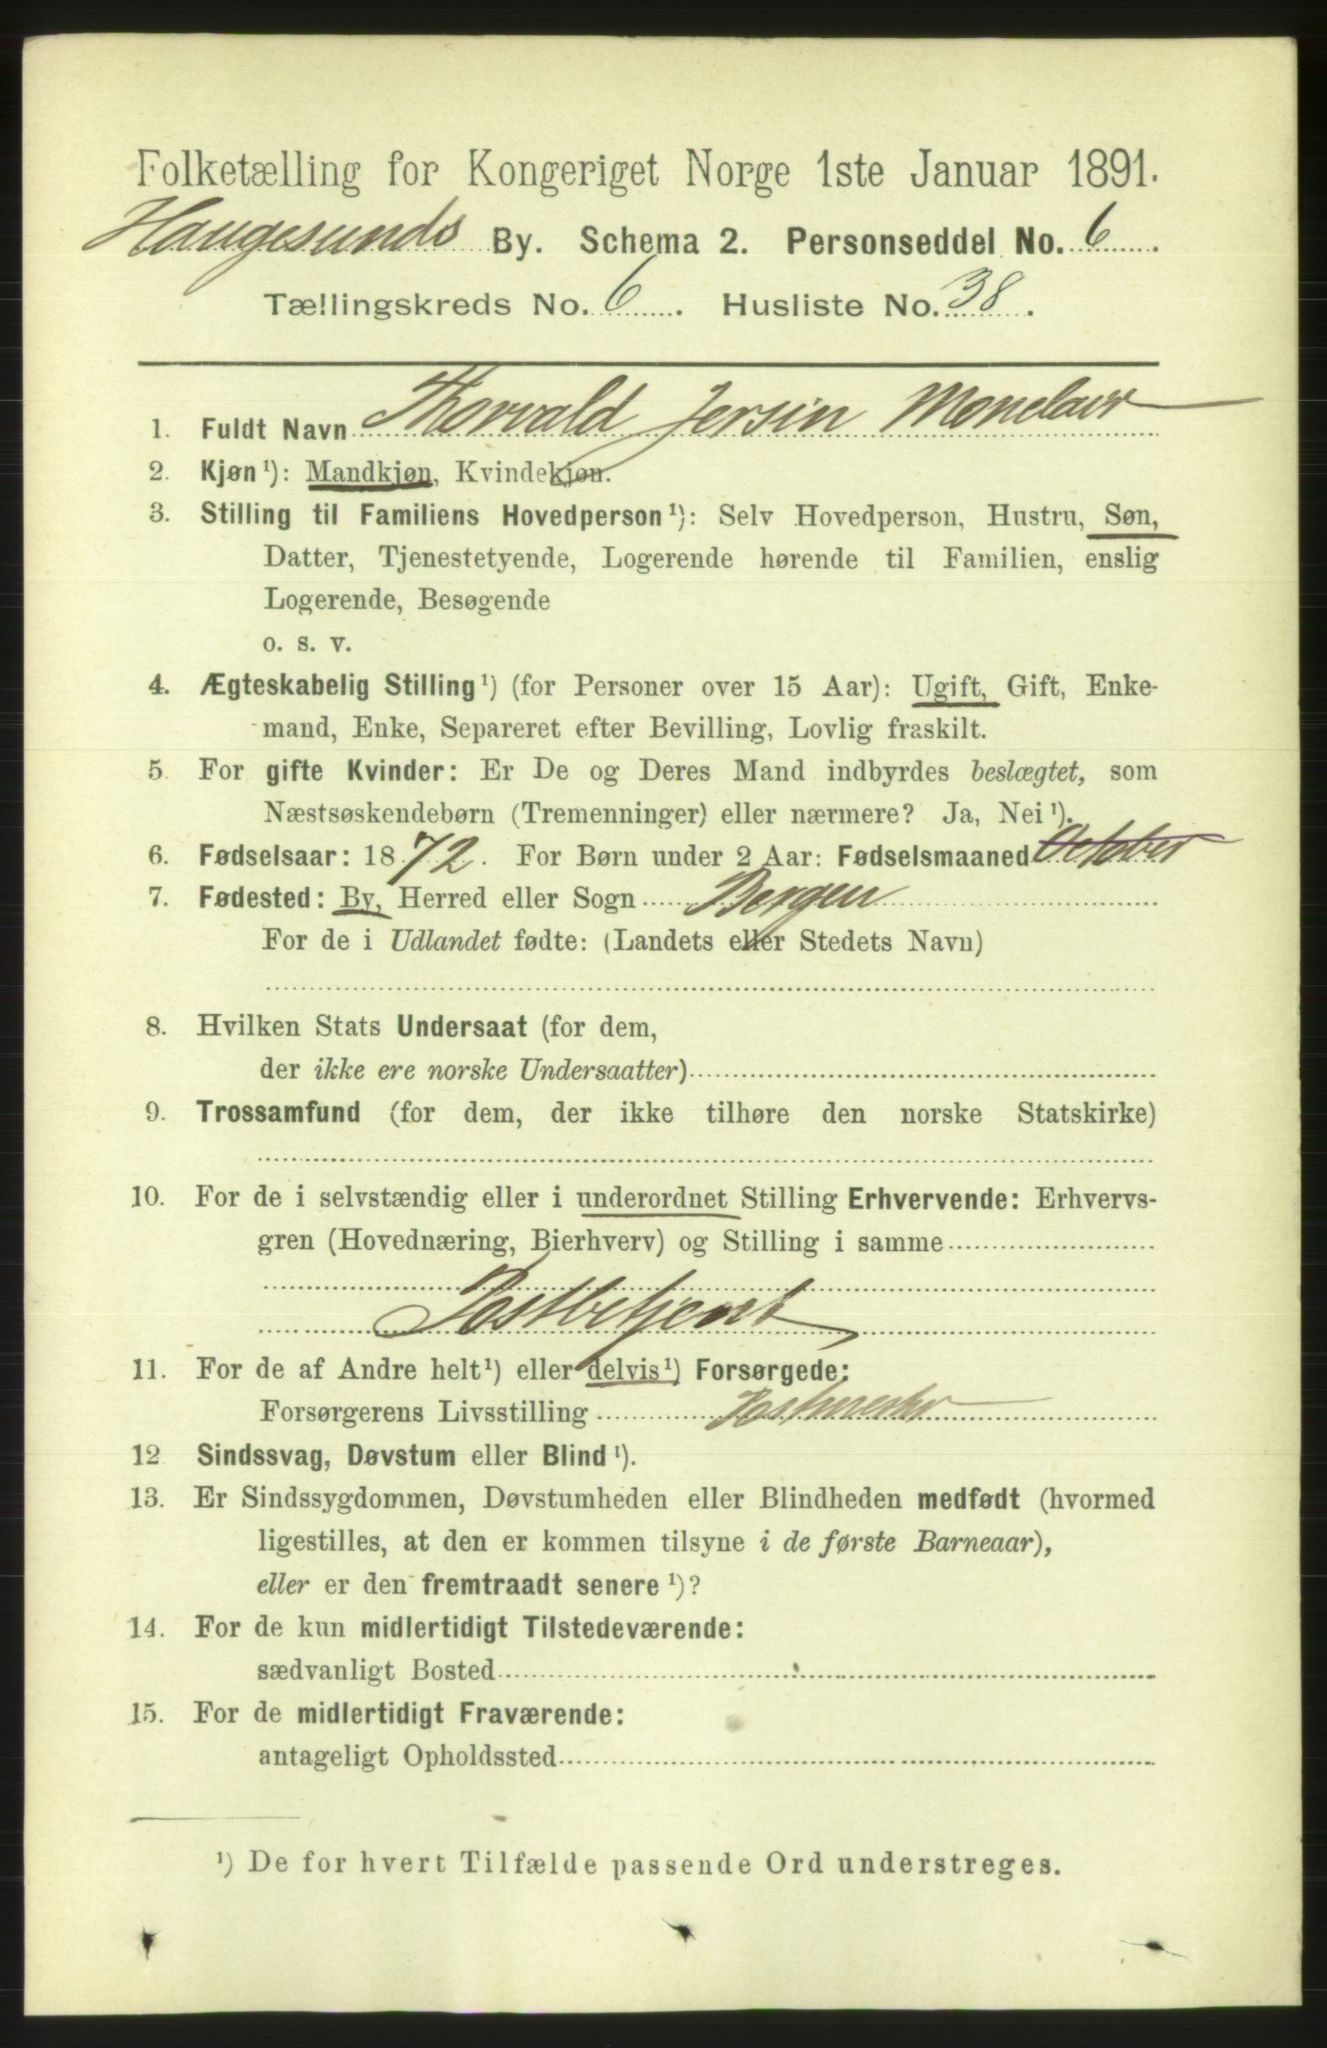 Folketælling for Kongeriget Norge 1ste Januar 1891.
Haugesunds By. Schema 2. Personseddel No. 6.
Tællingskreds No. 6. Husliste No. 38.
1. Fuldt Navn Thorvald Jersin Monclair
2. Kjøn¹): Mandkjøn, Kvindekjøn.
3. Stilling til Familiens Hovedperson¹): Selv Hovedperson, Hustru, Søn,
Datter, Tjenestetyende, Logerende hørende til Familien, enslig
Logerende, Besøgende
o. s. v.
4. Ægteskabelig Stilling¹) (for Personer over 15 Aar): Ugift, Gift, Enke-
mand, Enke, Separeret efter Bevilling, Lovlig fraskilt.
5 For gifte Kvinder: Er De og Deres Mand indbyrdes beslægtet, som
Næstsøskendebørn (Tremenninger) eller nærmere? Ja, Nei¹).
6. Fødselsaar: 1872. For Børn under 2 Aar: Fødselsmaaned October
7. Fødested: By, Herred eller Sogn Bergen
For de i Udlandet fødte: (Landets eller Stedets Navn)
8. Hvilken Stats Undersaat (for dem,
der ikke ere norske Undersaatter)
9. Trossamfund (for dem, der ikke tilhøre den norske Statskirke)
10. For de i selvstændig eller i underordnet Stilling Erhvervende: Erhvervs-
gren (Hovednæring, Bierhverv) og Stilling i samme
Postbetjent
11. For de af Andre helt¹) eller delvis¹) Forsørgede:
Forsørgerens Livsstilling Postmester
12 Sindssvag, Døvstum eller Blind¹).
13. Er Sindssygdommen, Døvstumheden eller Blindheden medfødt (hvormed
ligestilles, at den er kommen tilsyne i de første Barneaar),
eller er den fremtraadt senere¹)?
14. For de kun midlertidigt Tilstedeværende:
sædvanligt Bosted
15. For de midlertidigt Fraværende:
antageligt Opholdssted
¹) De for hvert Tilfælde passende Ord understreges.